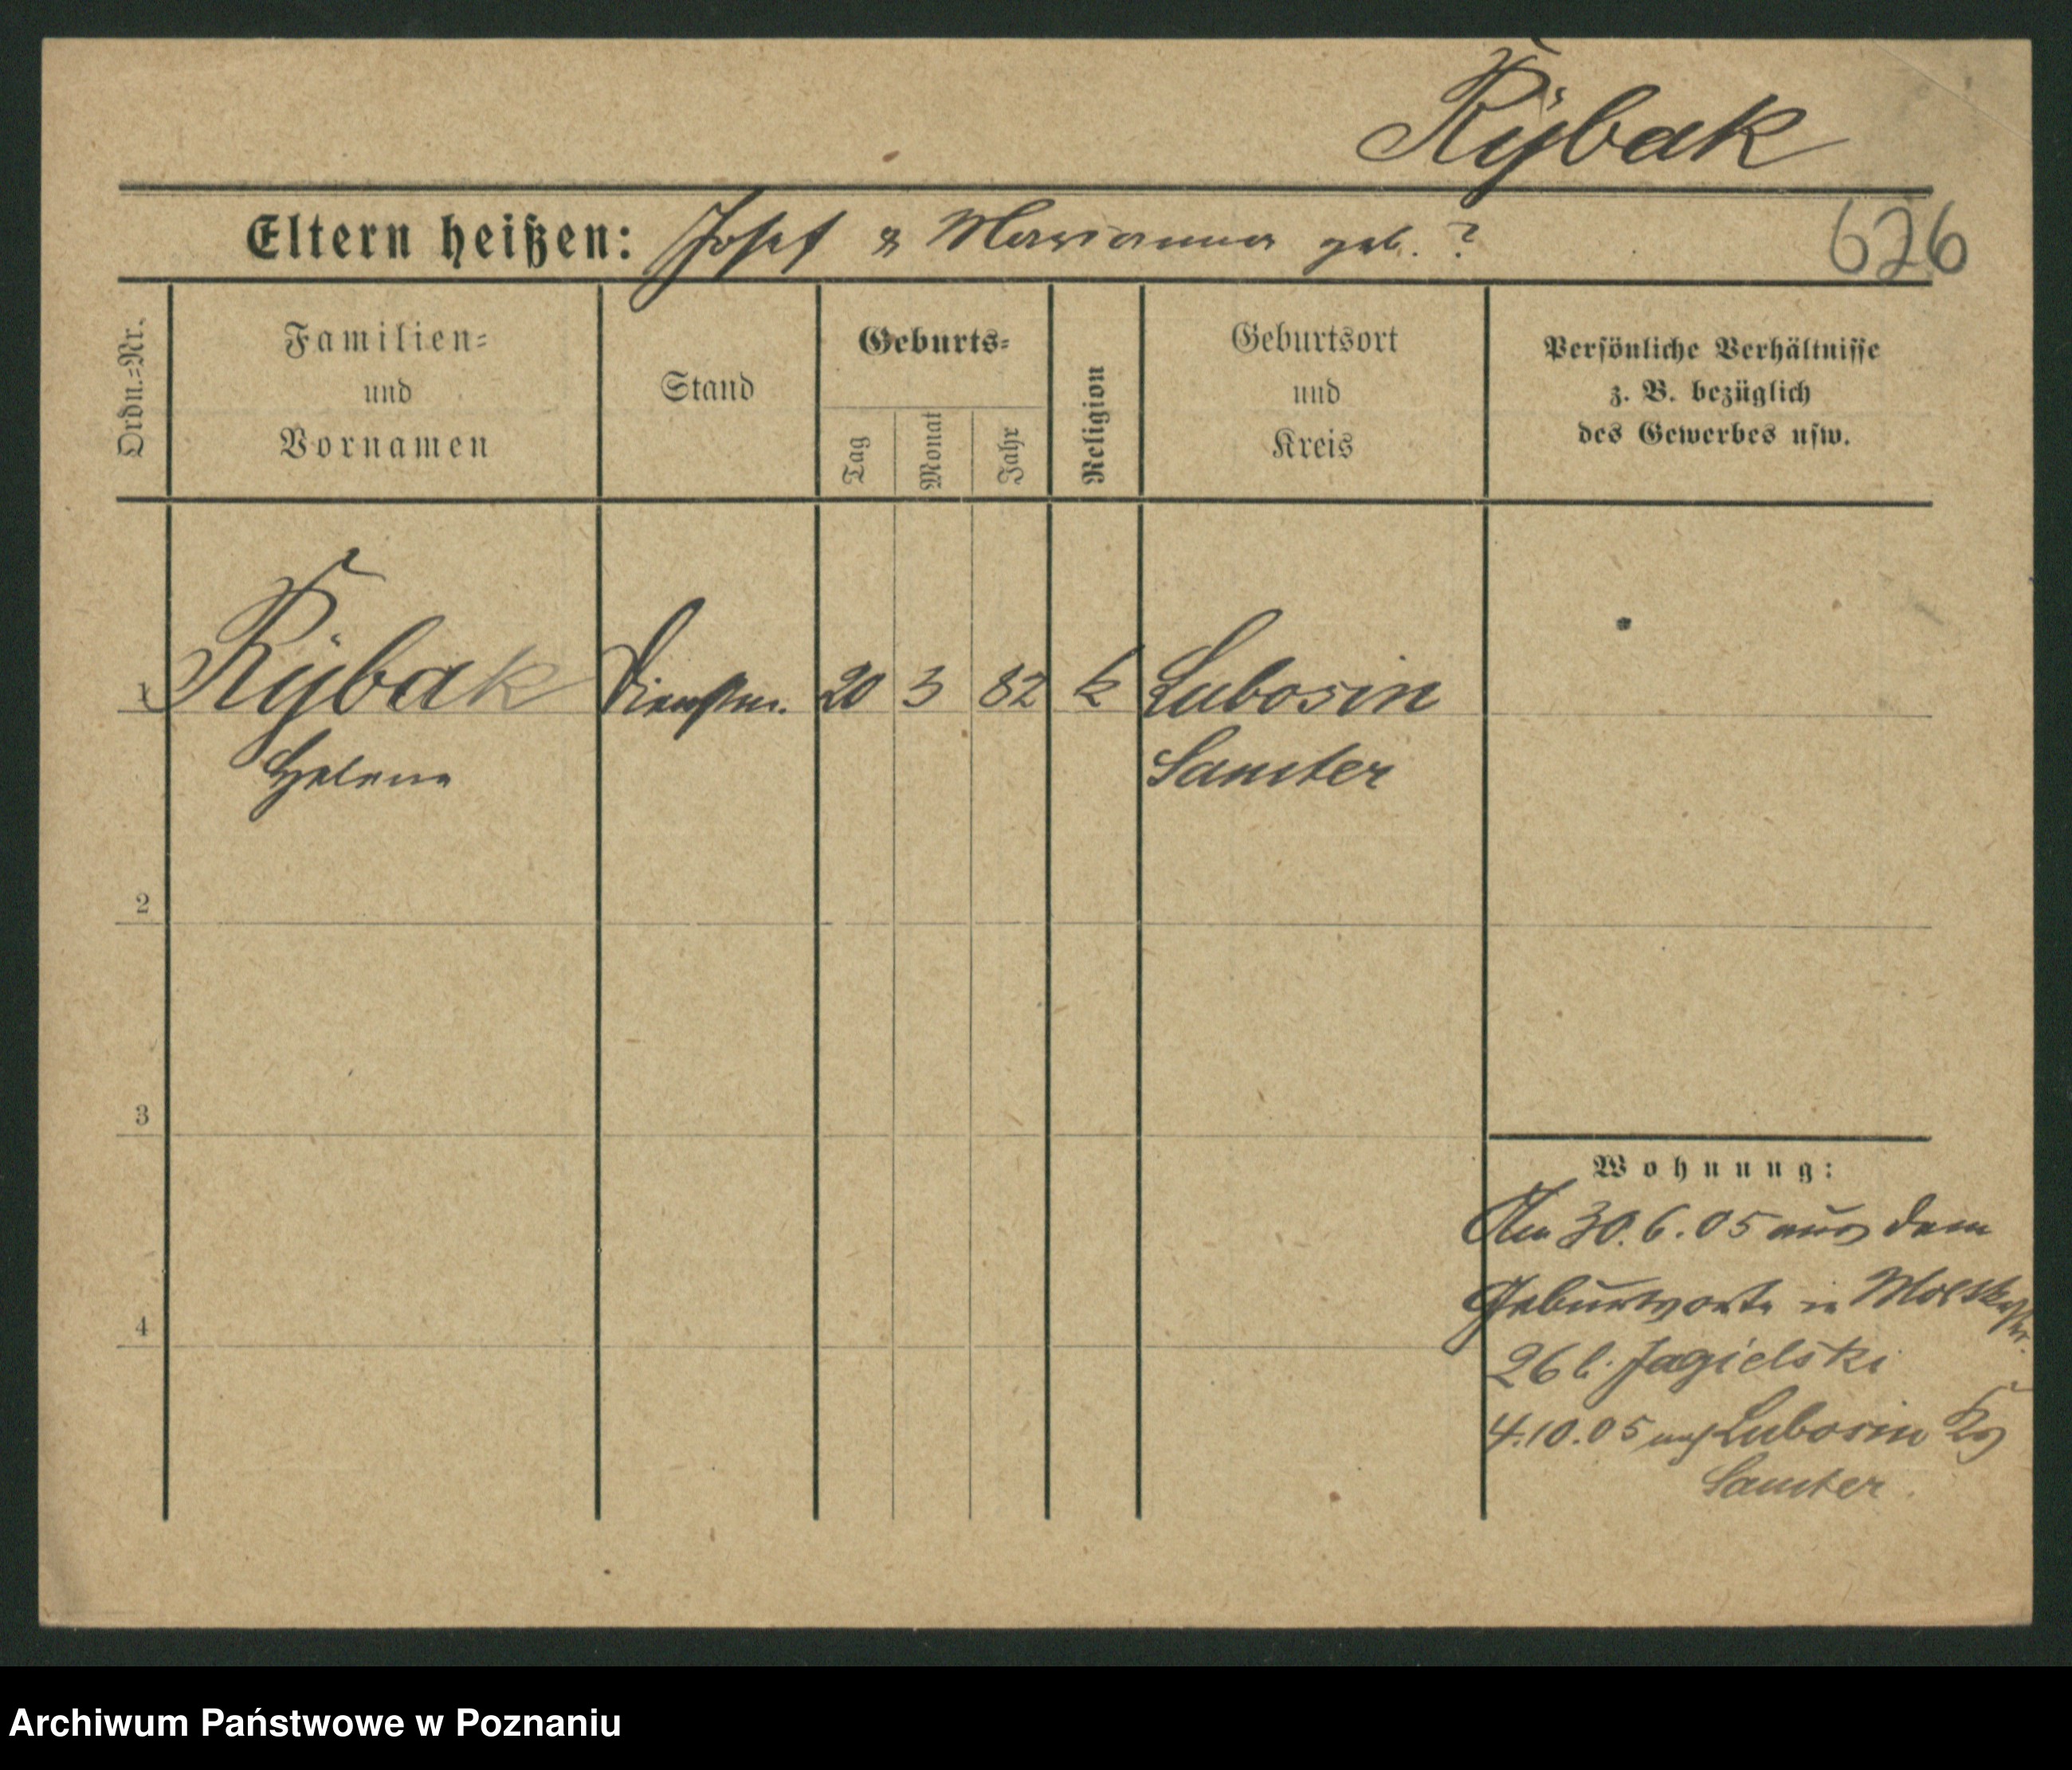 Rÿbak
Eltern heißen: Josef & Marianna geb. ?
626
Ordn.=Nr.
Familien=
und
Vornamen
Stand
Geburts=
Tag
Monat
Jahr
Religion
Geburtsort
und
Kreis
Persönliche Verhältnisse
z. B. bezüglich
des Gewerbes usw.
1 Rÿbak Dienstm. 20 3 82 k Lubosin
Helene Samter
2
3
4
Wohnung:
Am 30.6.05 aus dem
Geburtsorte in Moltkestr.
26 b. Jagielski
4.10.05 nach Lubosin Krs
Samter.
Archiwum Państwowe w Poznaniu